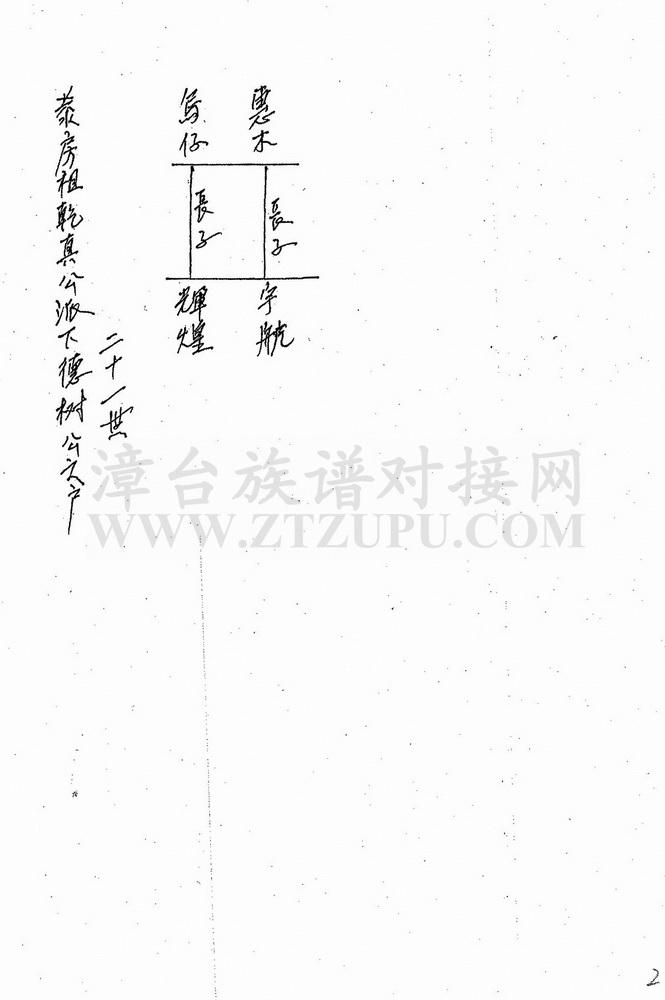 惠木
長子
宇航
長子
輝煌
二十一世
房祖乾真公派下德树公六户
漳台族谱对接网
WWW.ZTZUPU.COM
2